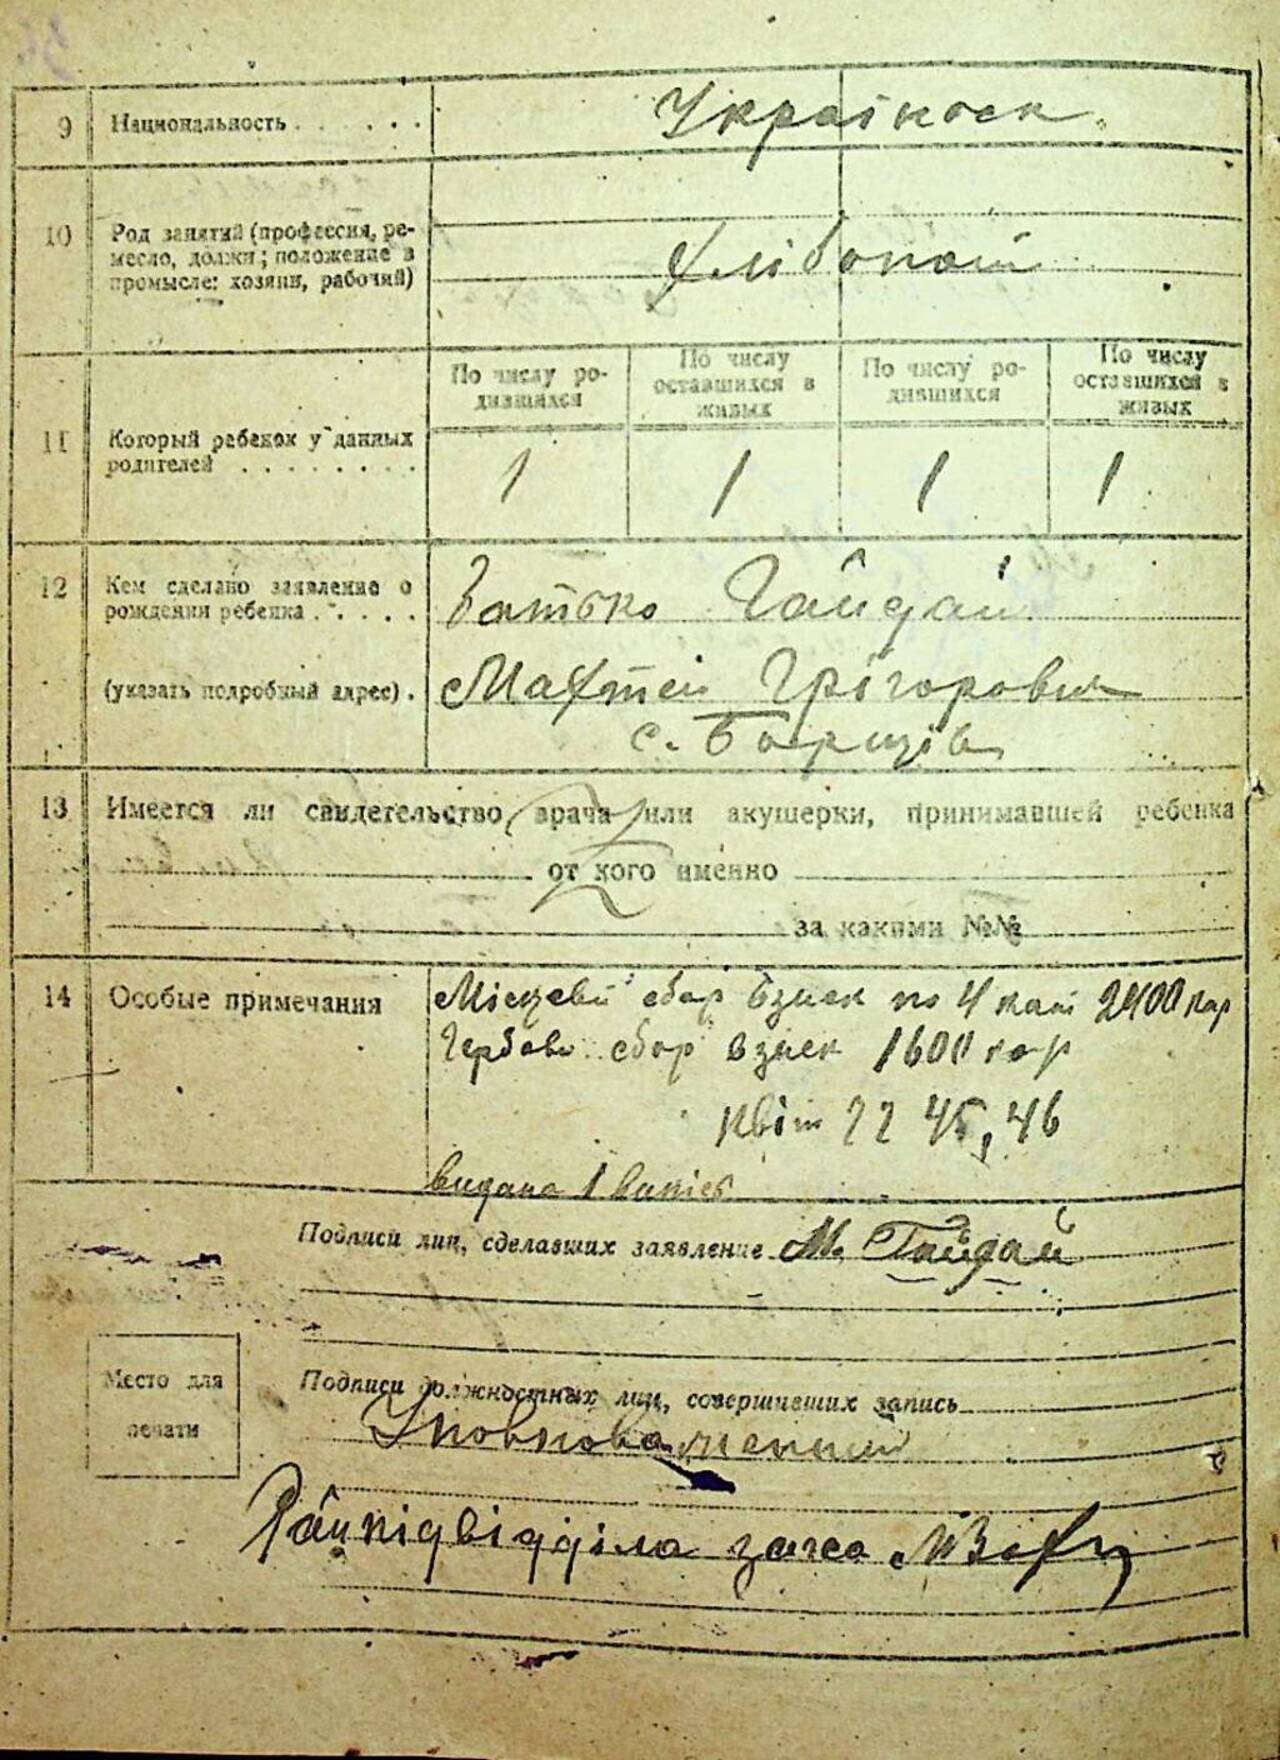 9 Национальность . . . . . . Українськ.
10 Род занятий (профессия, ре-
месло, должн; положение в
промысле: хозяин, рабочий)
Хлібопаш
11 Который ребенок у данных
родителей . . . . . . . .
По числу ро-
дившихся
По числу
оставшихся в
живых
По числу ро-
дившихся
По числу
оставшихся в
живых
1 1 1 1
12 Кем сделано заявление о
рождении ребенка . . . . .
(указать подробный адрес) .
Батько Гайдай
Махтей Грігорович
с. Борщів
13 Имеется ли свидетельство врача или акушерки, принимавшей ребенка
от кого именно
за какими №№
14 Особые примечания
Місцевий сбор взиск по 4 кат 2400 кар
Гербові сбор взиск 1600 кар
квіт 22 45, 46
видана 1 випіс
Подписи лиц, сделавших заявление М. Гайдай
Место для
печати
Подписи должностных лиц, совершивших запись
Уповноважений
Райпідвідділа загса